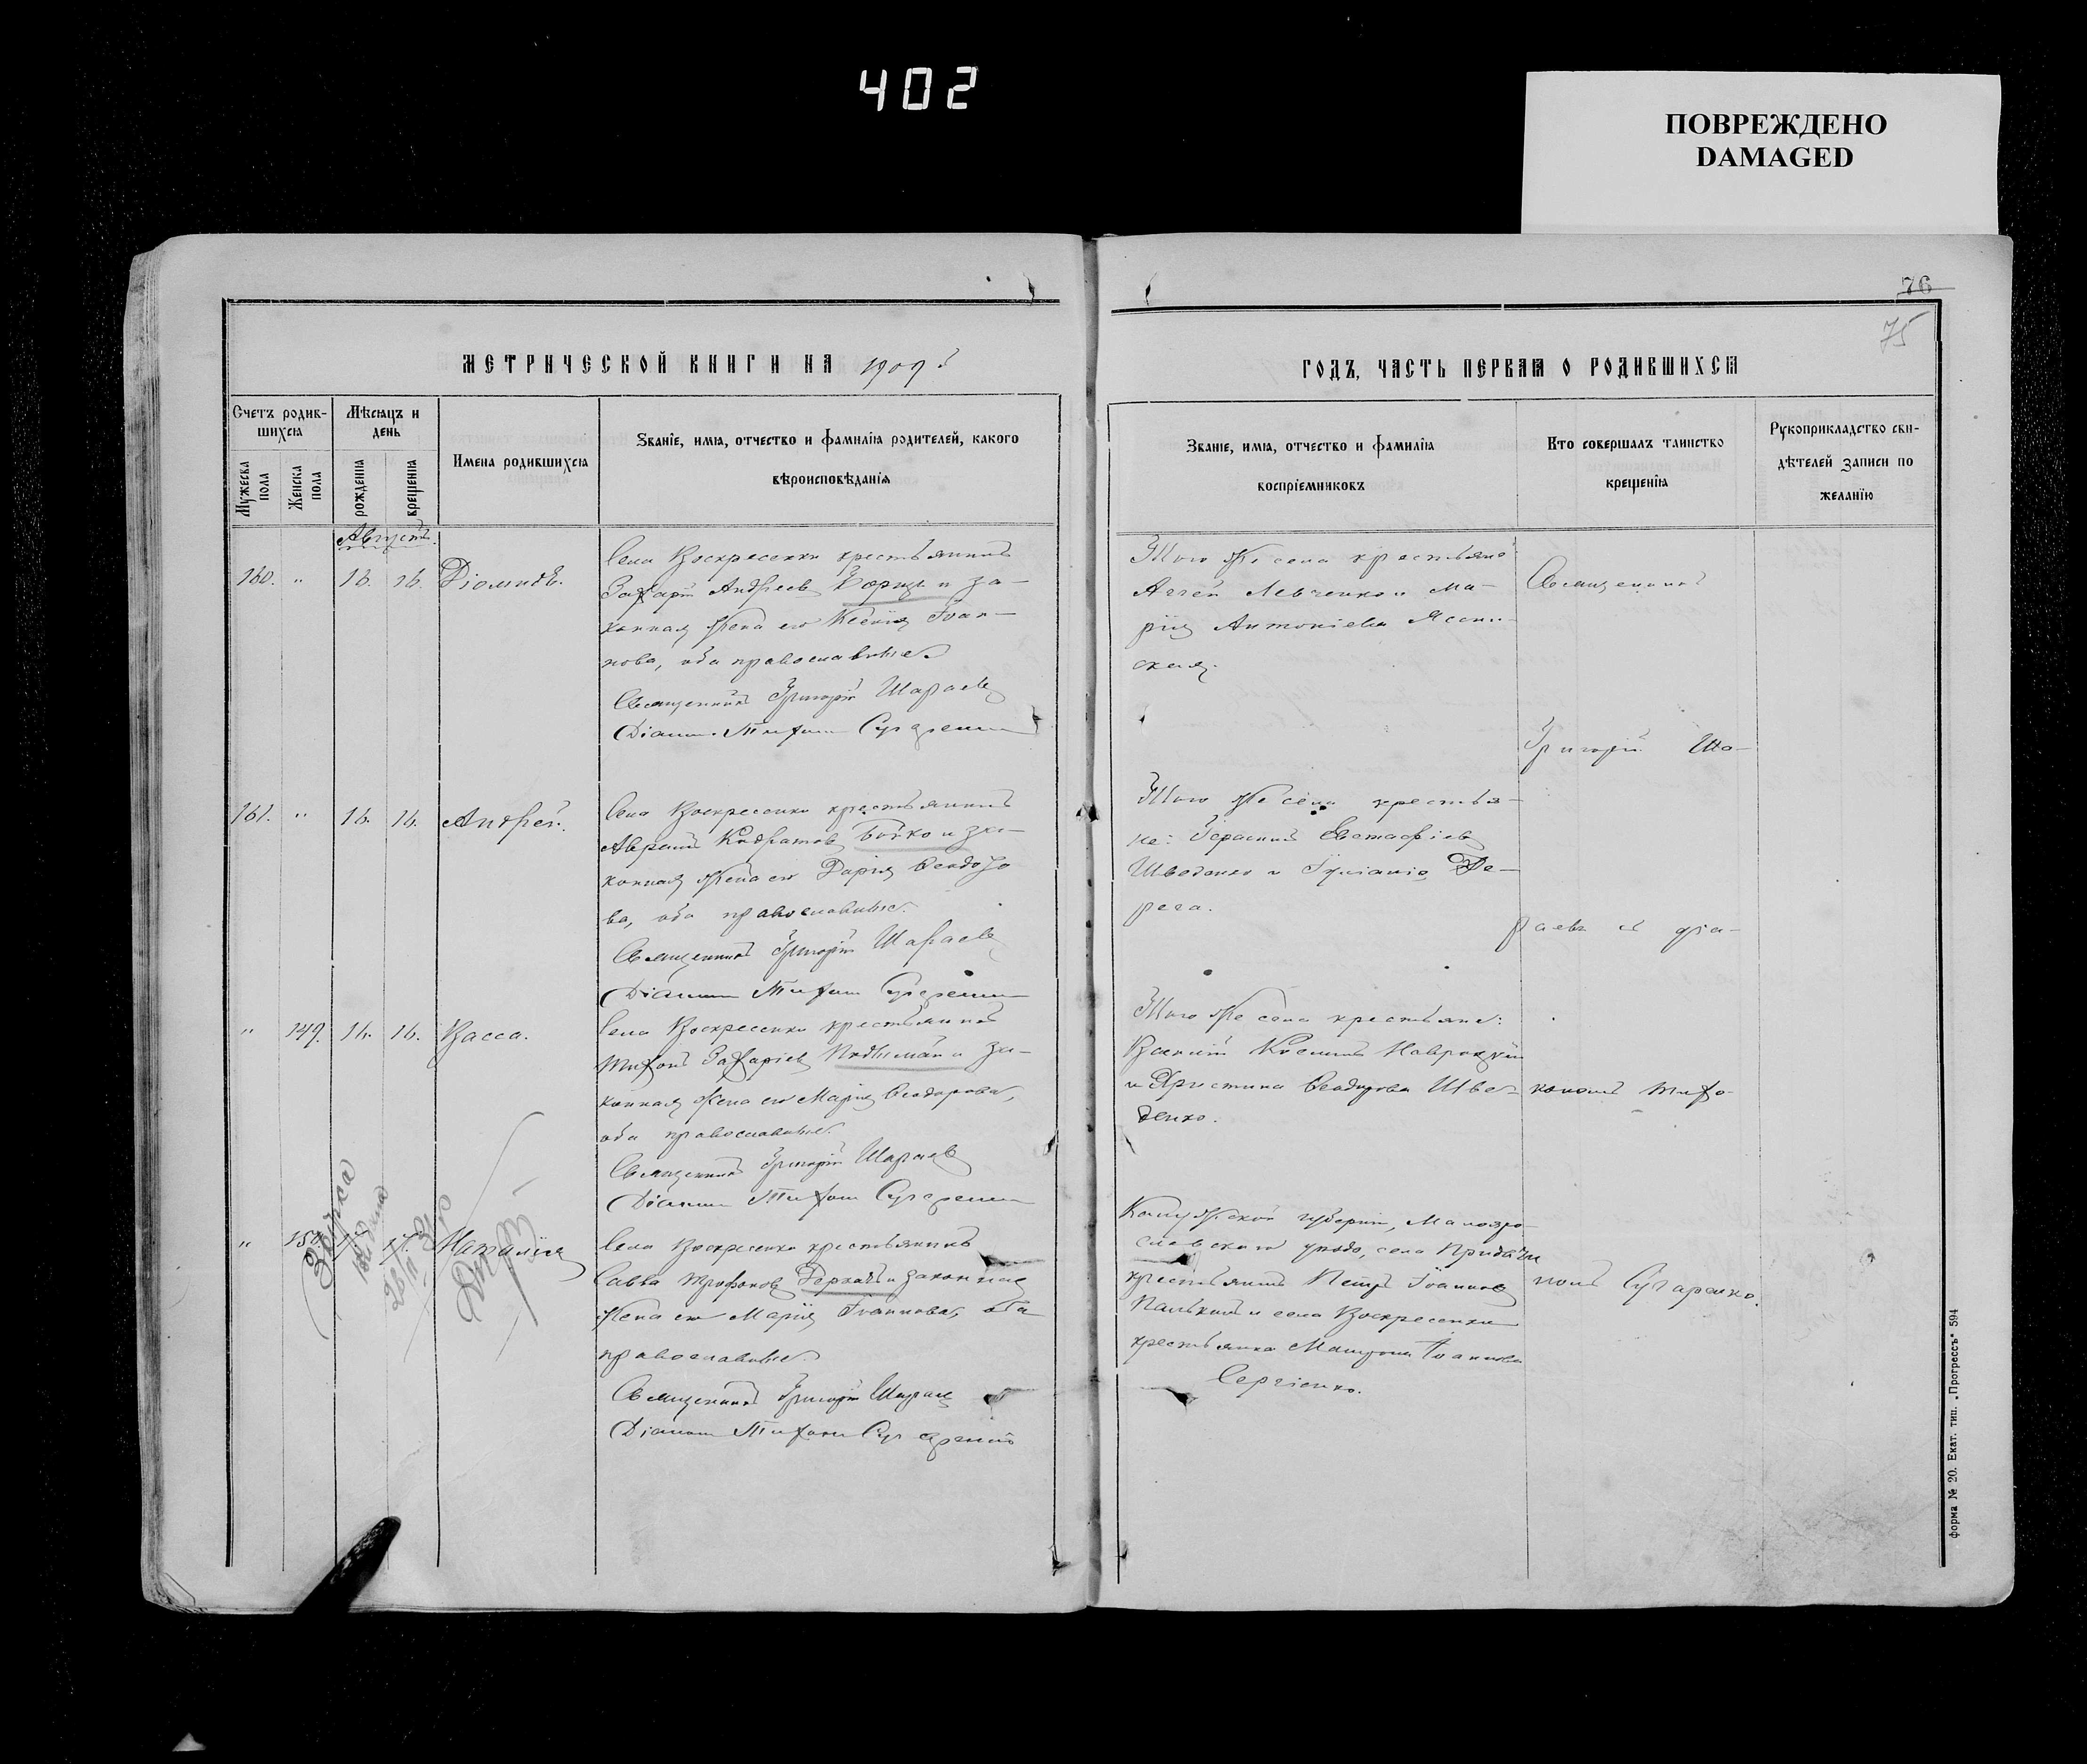 402
ПОВРЕЖДЕНО
DAMAGED
76
75
МЕТРИЧЕСКОЙ КНИГИ НА 1909
ГОДЪ, ЧАСТЬ ПЕРВАЯ О РОДИВШИХСЯ
Счетъ родившихся
Мужеска пола
Женска пола
Мѣсяцъ и день
рожденія
крещенія
Имена родившихся
Званіе, имя, отчество и фамилія родителей, какого
вѣроисповѣданія
Званіе, имя, отчество и фамилія
воспріемниковъ
Кто совершалъ таинство
крещенія
Рукоприкладство сви-
дѣтелей записи по
желанію
Августъ.
160. " 16. 16. Діомидъ.
Села Воскресенки крестьянинъ
Захарій Андреевъ и за-
конная жена его Ксенія Іоан-
нова, оба православные
Священникъ Григорій Шараевъ
Діаконъ Тихонъ
Того же села крестьяне
Левченко и Ма-
рія Антоніева Ясин-
ская.
Священникъ
Григорій Ша-
161. " 16. 16. Андрей.
Села Воскресенки крестьянинъ
Бойко и за-
конная жена его Дарія Феодо
ва, оба православные.
Священникъ Григорій Шараевъ
Діаконъ Тихонъ
Того же села крестья-
не: Герасимъ Евстафіевъ
Шведенко и Іуліанія Де-
рега.
раевъ съ діа-
" 149. 16. 16. Васса.
Села Воскресенки крестьянинъ
Тихонъ Захаріевъ и за-
конная жена его Марія Феодорова,
оба православные.
Священникъ Григорій Шараевъ
Діаконъ Тихонъ
Того же села крестьяне:
Косминъ Навроцкій
и Христина Феодорова Шве-
денко.
кономъ Тихо-
" 150. 17. Наталія
Села Воскресенки крестьянинъ
Савва Трофимовъ и законная
жена его Марія Іоаннова, оба
православные.
Священникъ Григорій Шараевъ
Діаконъ Тихонъ
Калужской губерніи, Малояро-
славскаго уѣзда, села
крестьянинъ Петръ Іоанновъ
и села Воскресенки
крестьянка Іоаннова
Сергіенко.
номъ Сугаренко.
форма № 20. Екат. тип. „Прогрессъ“ 594